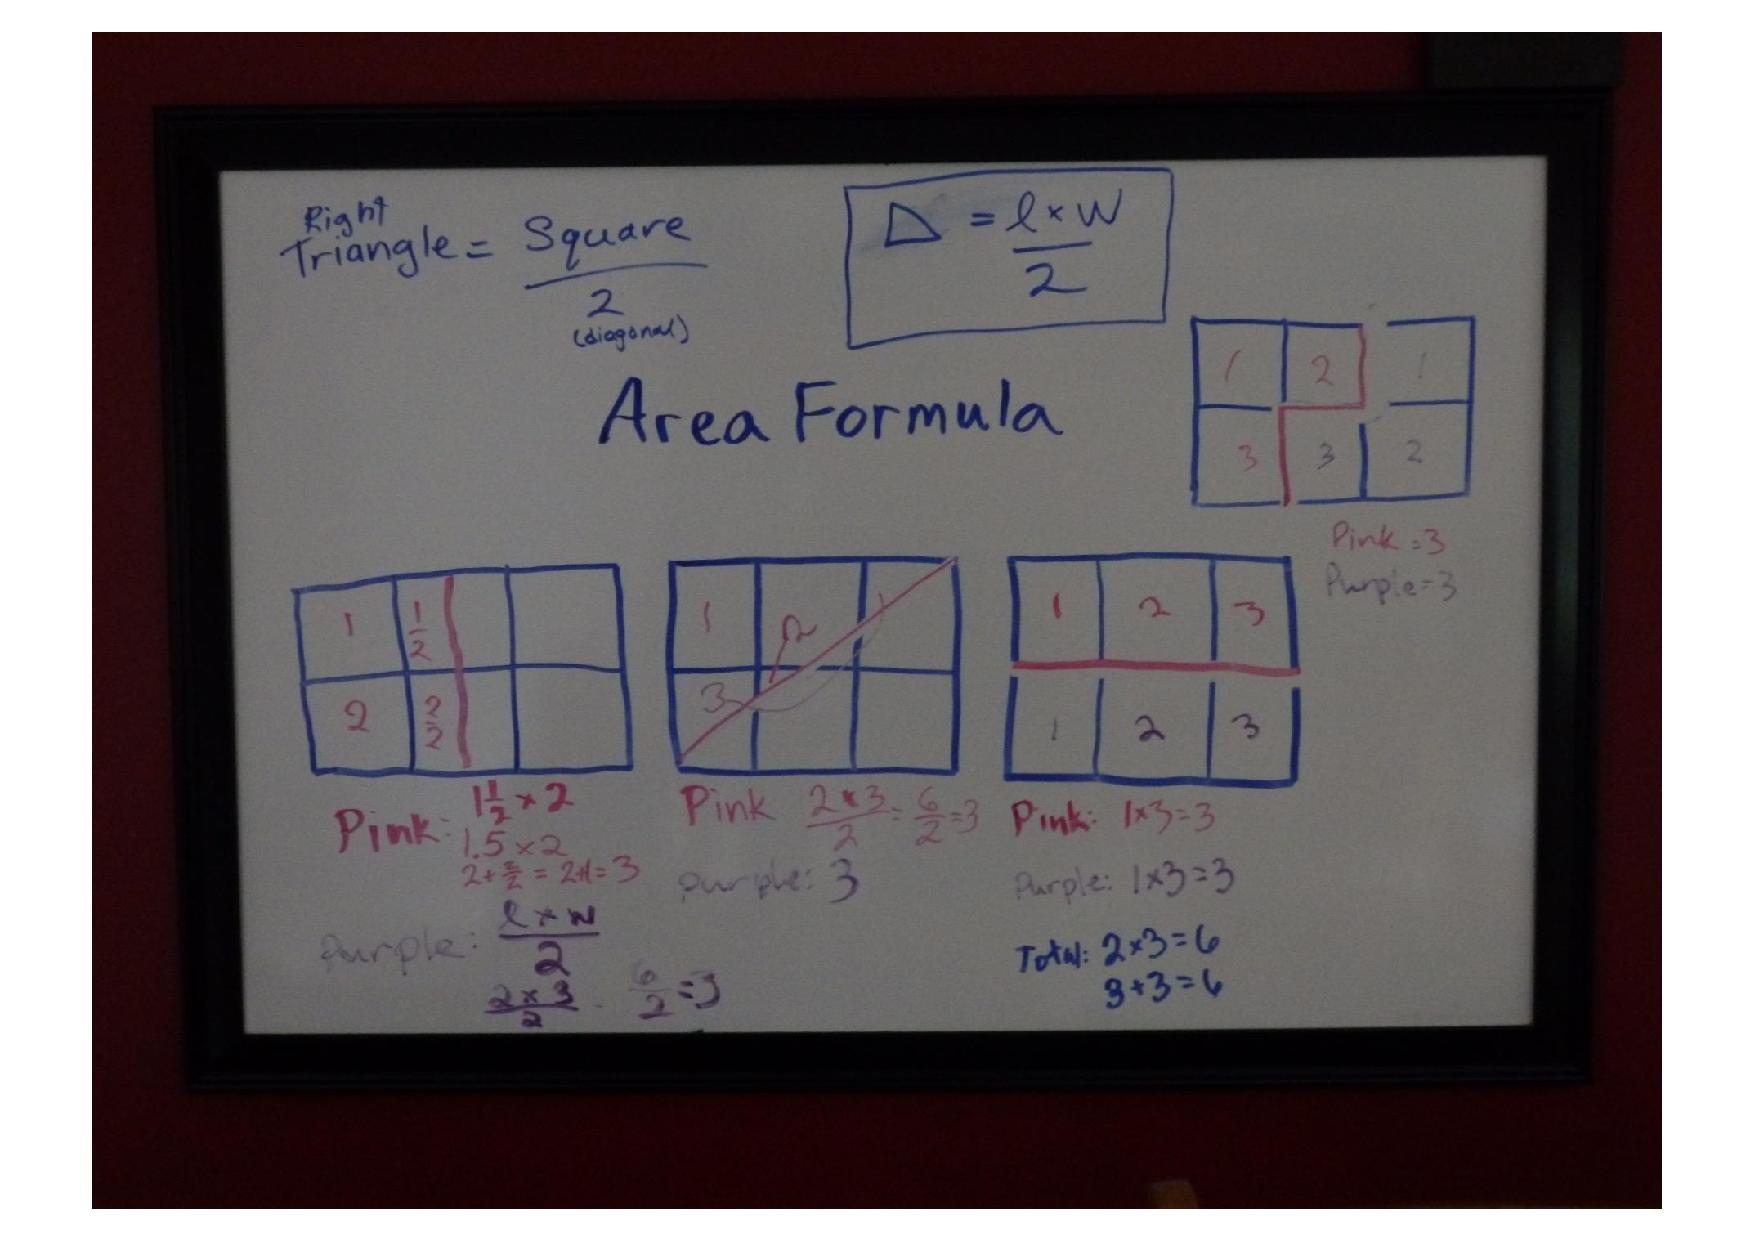 Right
Triangle = Square
2
(diagonal)
= l × W
2
Area Formula
1 2 1
3 3 2
Pink = 3
Purple = 3
1 1/2
2 2/2
1 2 1
3
1 2 3
1 2 3
Pink: 1 1/2 × 2
1.5 × 2
= 2+1 = 3
Purple: l × w
2
2 × 3
2
6/2 = 3
Pink 2 × 3 / 2 = 6/2 = 3
purple: 3
Pink: 1×3=3
Purple: 1×3=3
Total: 2×3=6
3+3=6